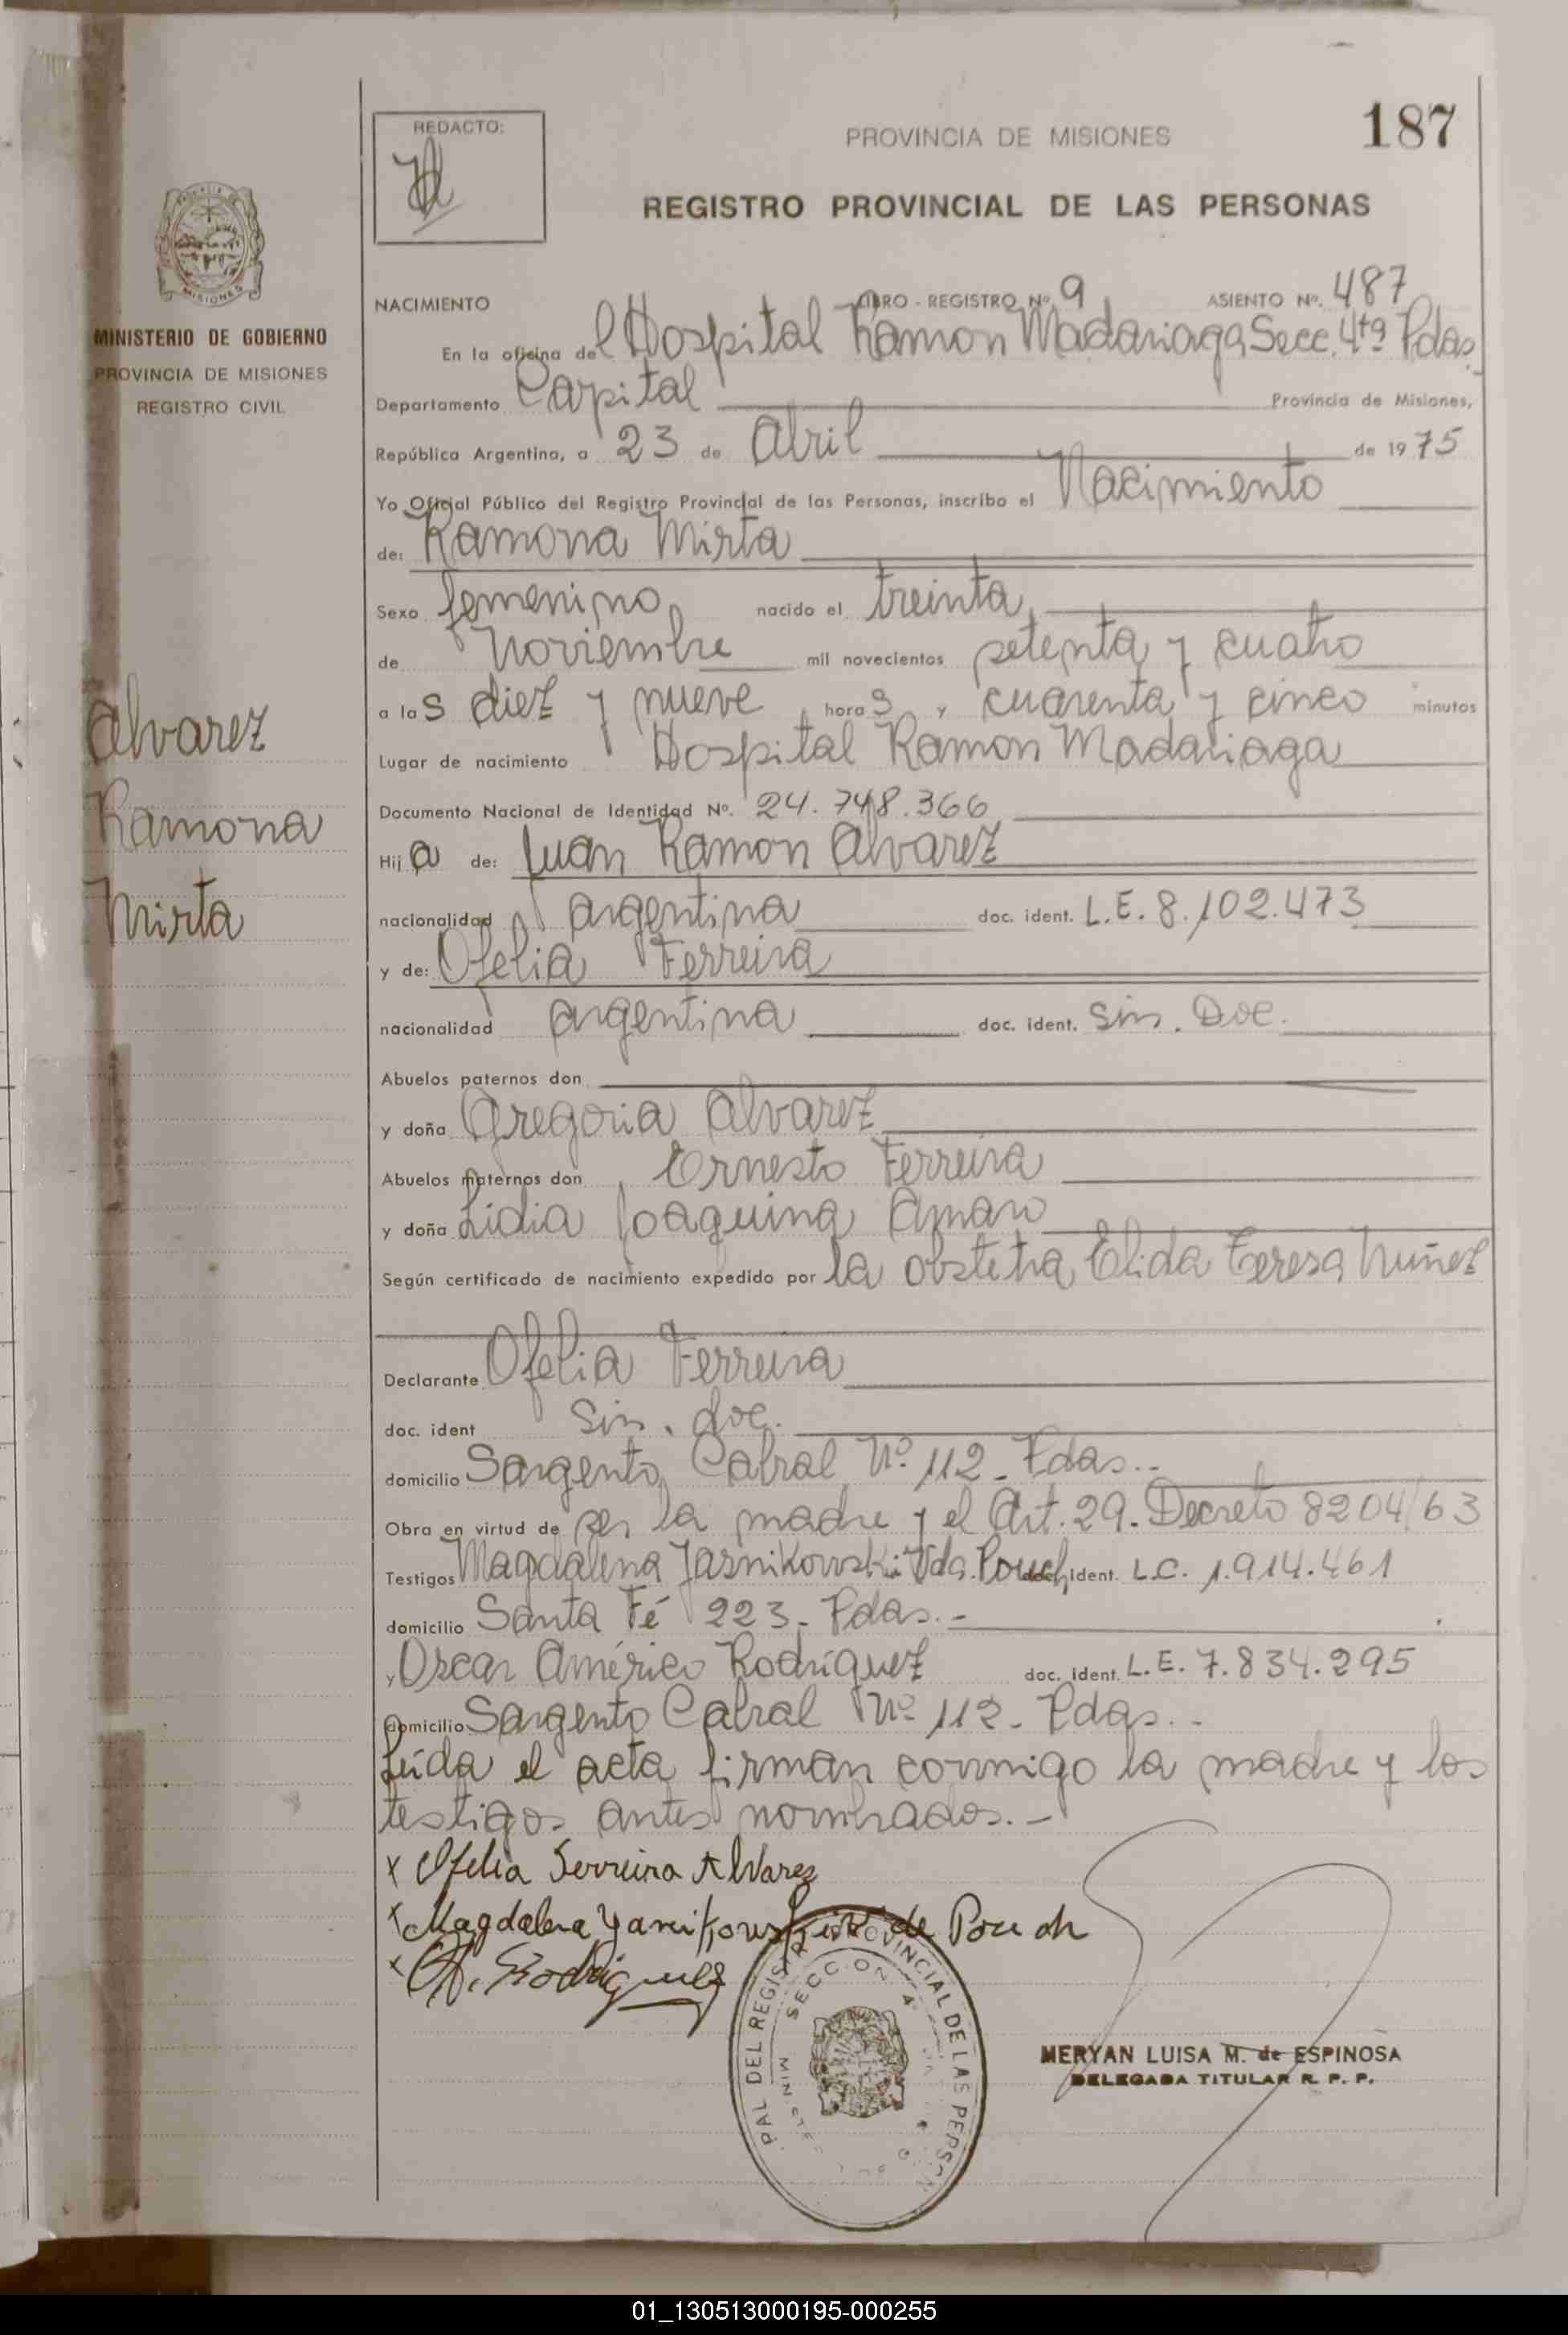 187
REDACTO:
PROVINCIA DE MISIONES
REGISTRO PROVINCIAL DE LAS PERSONAS
MISIONES
MINISTERIO DE GOBIERNO
PROVINCIA DE MISIONES
REGISTRO CIVIL
Alvarez
Ramona
Mirta
NACIMIENTO LIBRO - REGISTRO Nº. 9 ASIENTO Nº. 487
En la oficina del Hospital Ramon Madariaga Secc. 4ta Pdas.
Departamento Capital Provincia de Misiones,
República Argentina, a 23 de Abril de 1975
Yo Oficial Público del Registro Provincial de las Personas, inscribo el Nacimiento
de: Ramona Mirta
Sexo femenino nacido el treinta
de Noviembre mil novecientos setenta y cuatro
a las diez y nueve horas y cuarenta y cinco minutos
Lugar de nacimiento Hospital Ramon Madariaga
Documento Nacional de Identidad Nº. 24.748.366
Hija de: Juan Ramon Alvarez
nacionalidad argentina doc. ident. L.E. 8.102.473
y de: Ofelia Ferreira
nacionalidad argentina doc. ident. Sin. Doc.
Abuelos paternos don
y doña Gregoria Alvarez
Abuelos maternos don Ernesto Ferreira
y doña Lidia Joaquina Amaro
Según certificado de nacimiento expedido por la obstetra Elida Teresa Nuñez
Declarante Ofelia Ferreira
doc. ident Sin. doc.
domicilio Sargento Cabral Nº 112 - Pdas.-
Obra en virtud de ser la madre y el Art. 29. Decreto 8204/63
Testigos Magdalena Jasnikowski Vda. Pouch doc. ident. L.C. 1.914.461
domicilio Santa Fé 223 - Pdas.-
y Oscar Américo Rodríguez doc. ident. L.E. 7.834.295
domicilio Sargento Cabral Nº 112 - Pdas.-
Leida el acta firman conmigo la madre y los
testigos antes nombrados.-
x Ofelia Ferreira Alvarez
x Magdalena de Pouch
x Rodriguez
PAL DEL REGISTRO PROVINCIAL DE LAS PERSON
SECCION 4
MERYAN LUISA M. de ESPINOSA
DELEGADA TITULAR R. P. P.
01_130513000195-000255